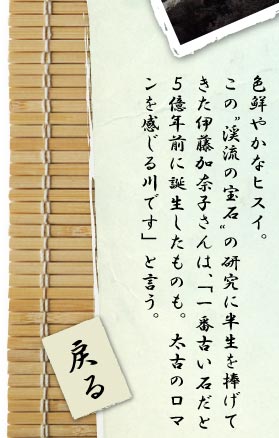 色鮮やかなヒスイ。
この〝渓流の宝石〟の研究に半生を捧げて
きた伊藤加奈子さんは、「一番古い石だと
５億年前に誕生したものも。太古のロマ
ンを感じる川です」と言う。
戻る